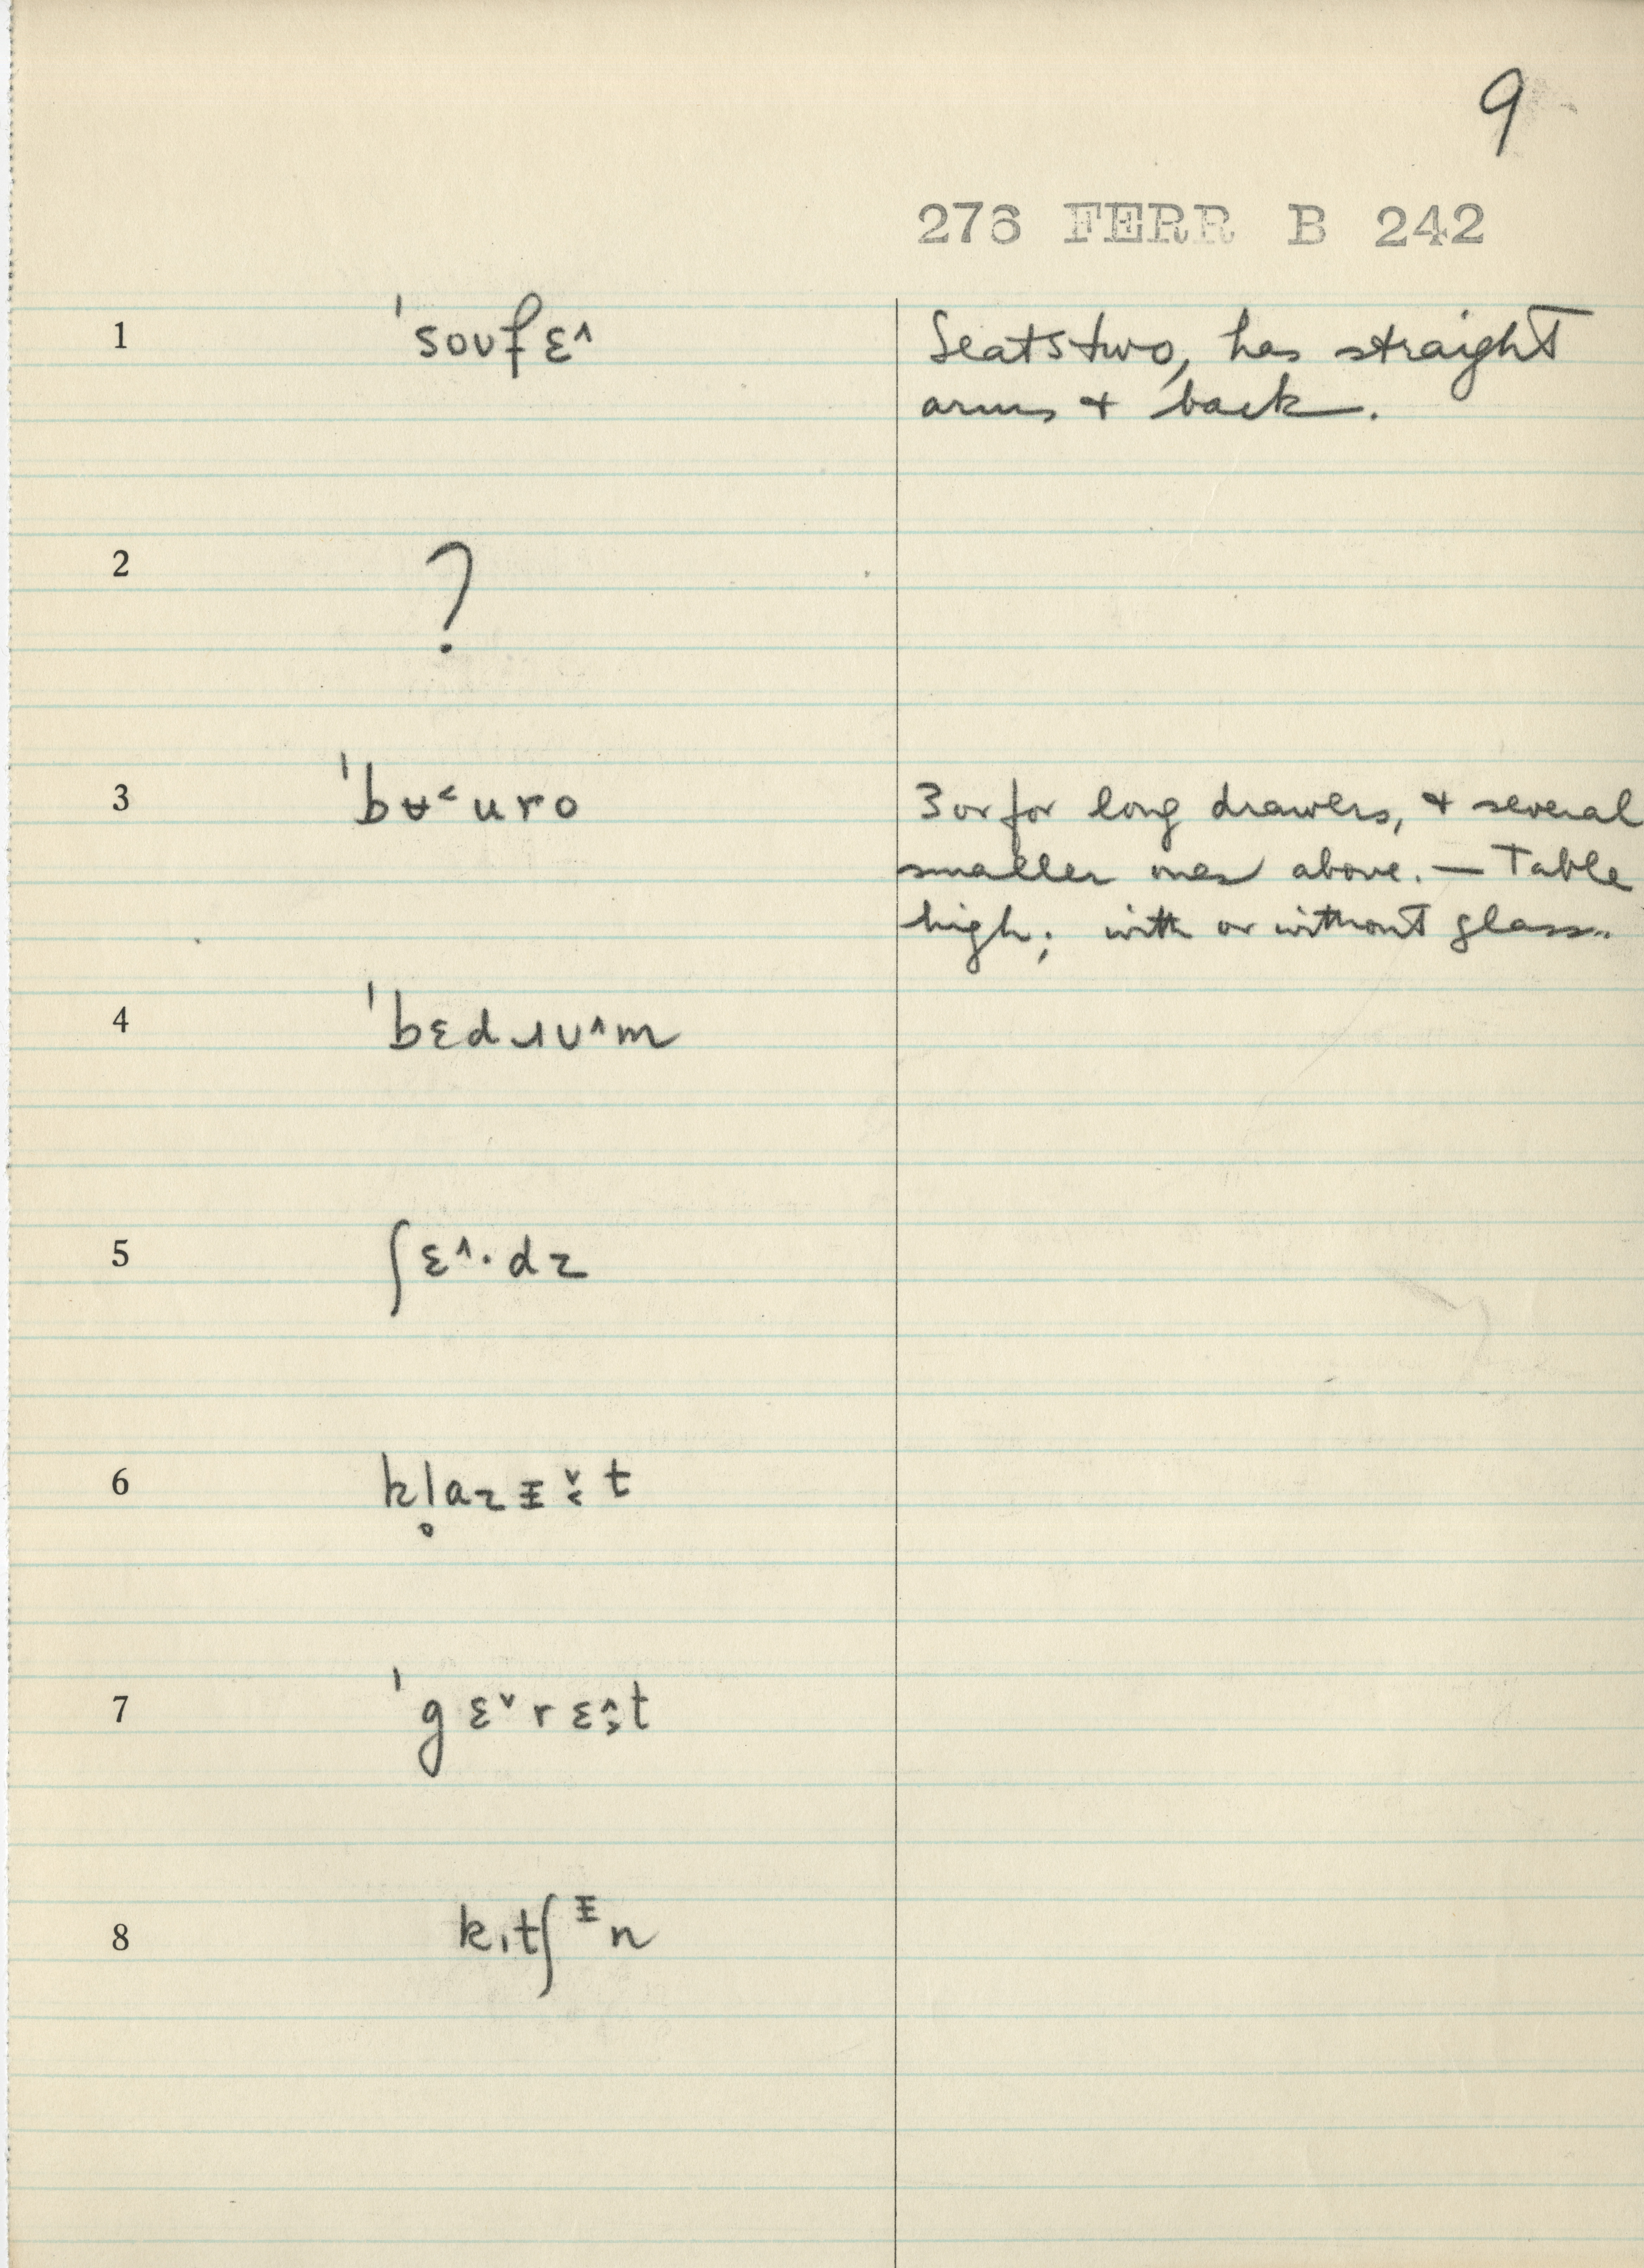 9
276 FERR B 242
1 ˈsoʊfɛ˄ Seats two, has straight
arms + back.
2 ?
3 ˈbʉ˂uro 3 or for long drawers, + several
smaller ones above. — Table
high; with or without glass.
4 ˈbɛdɹʊ˄m
5 ʃɛ˄·dz
6 kl̥azɪ̵̌˂t
7 ˈgɛ˅rɛ˄˃t
8 kɪtʃᵻn